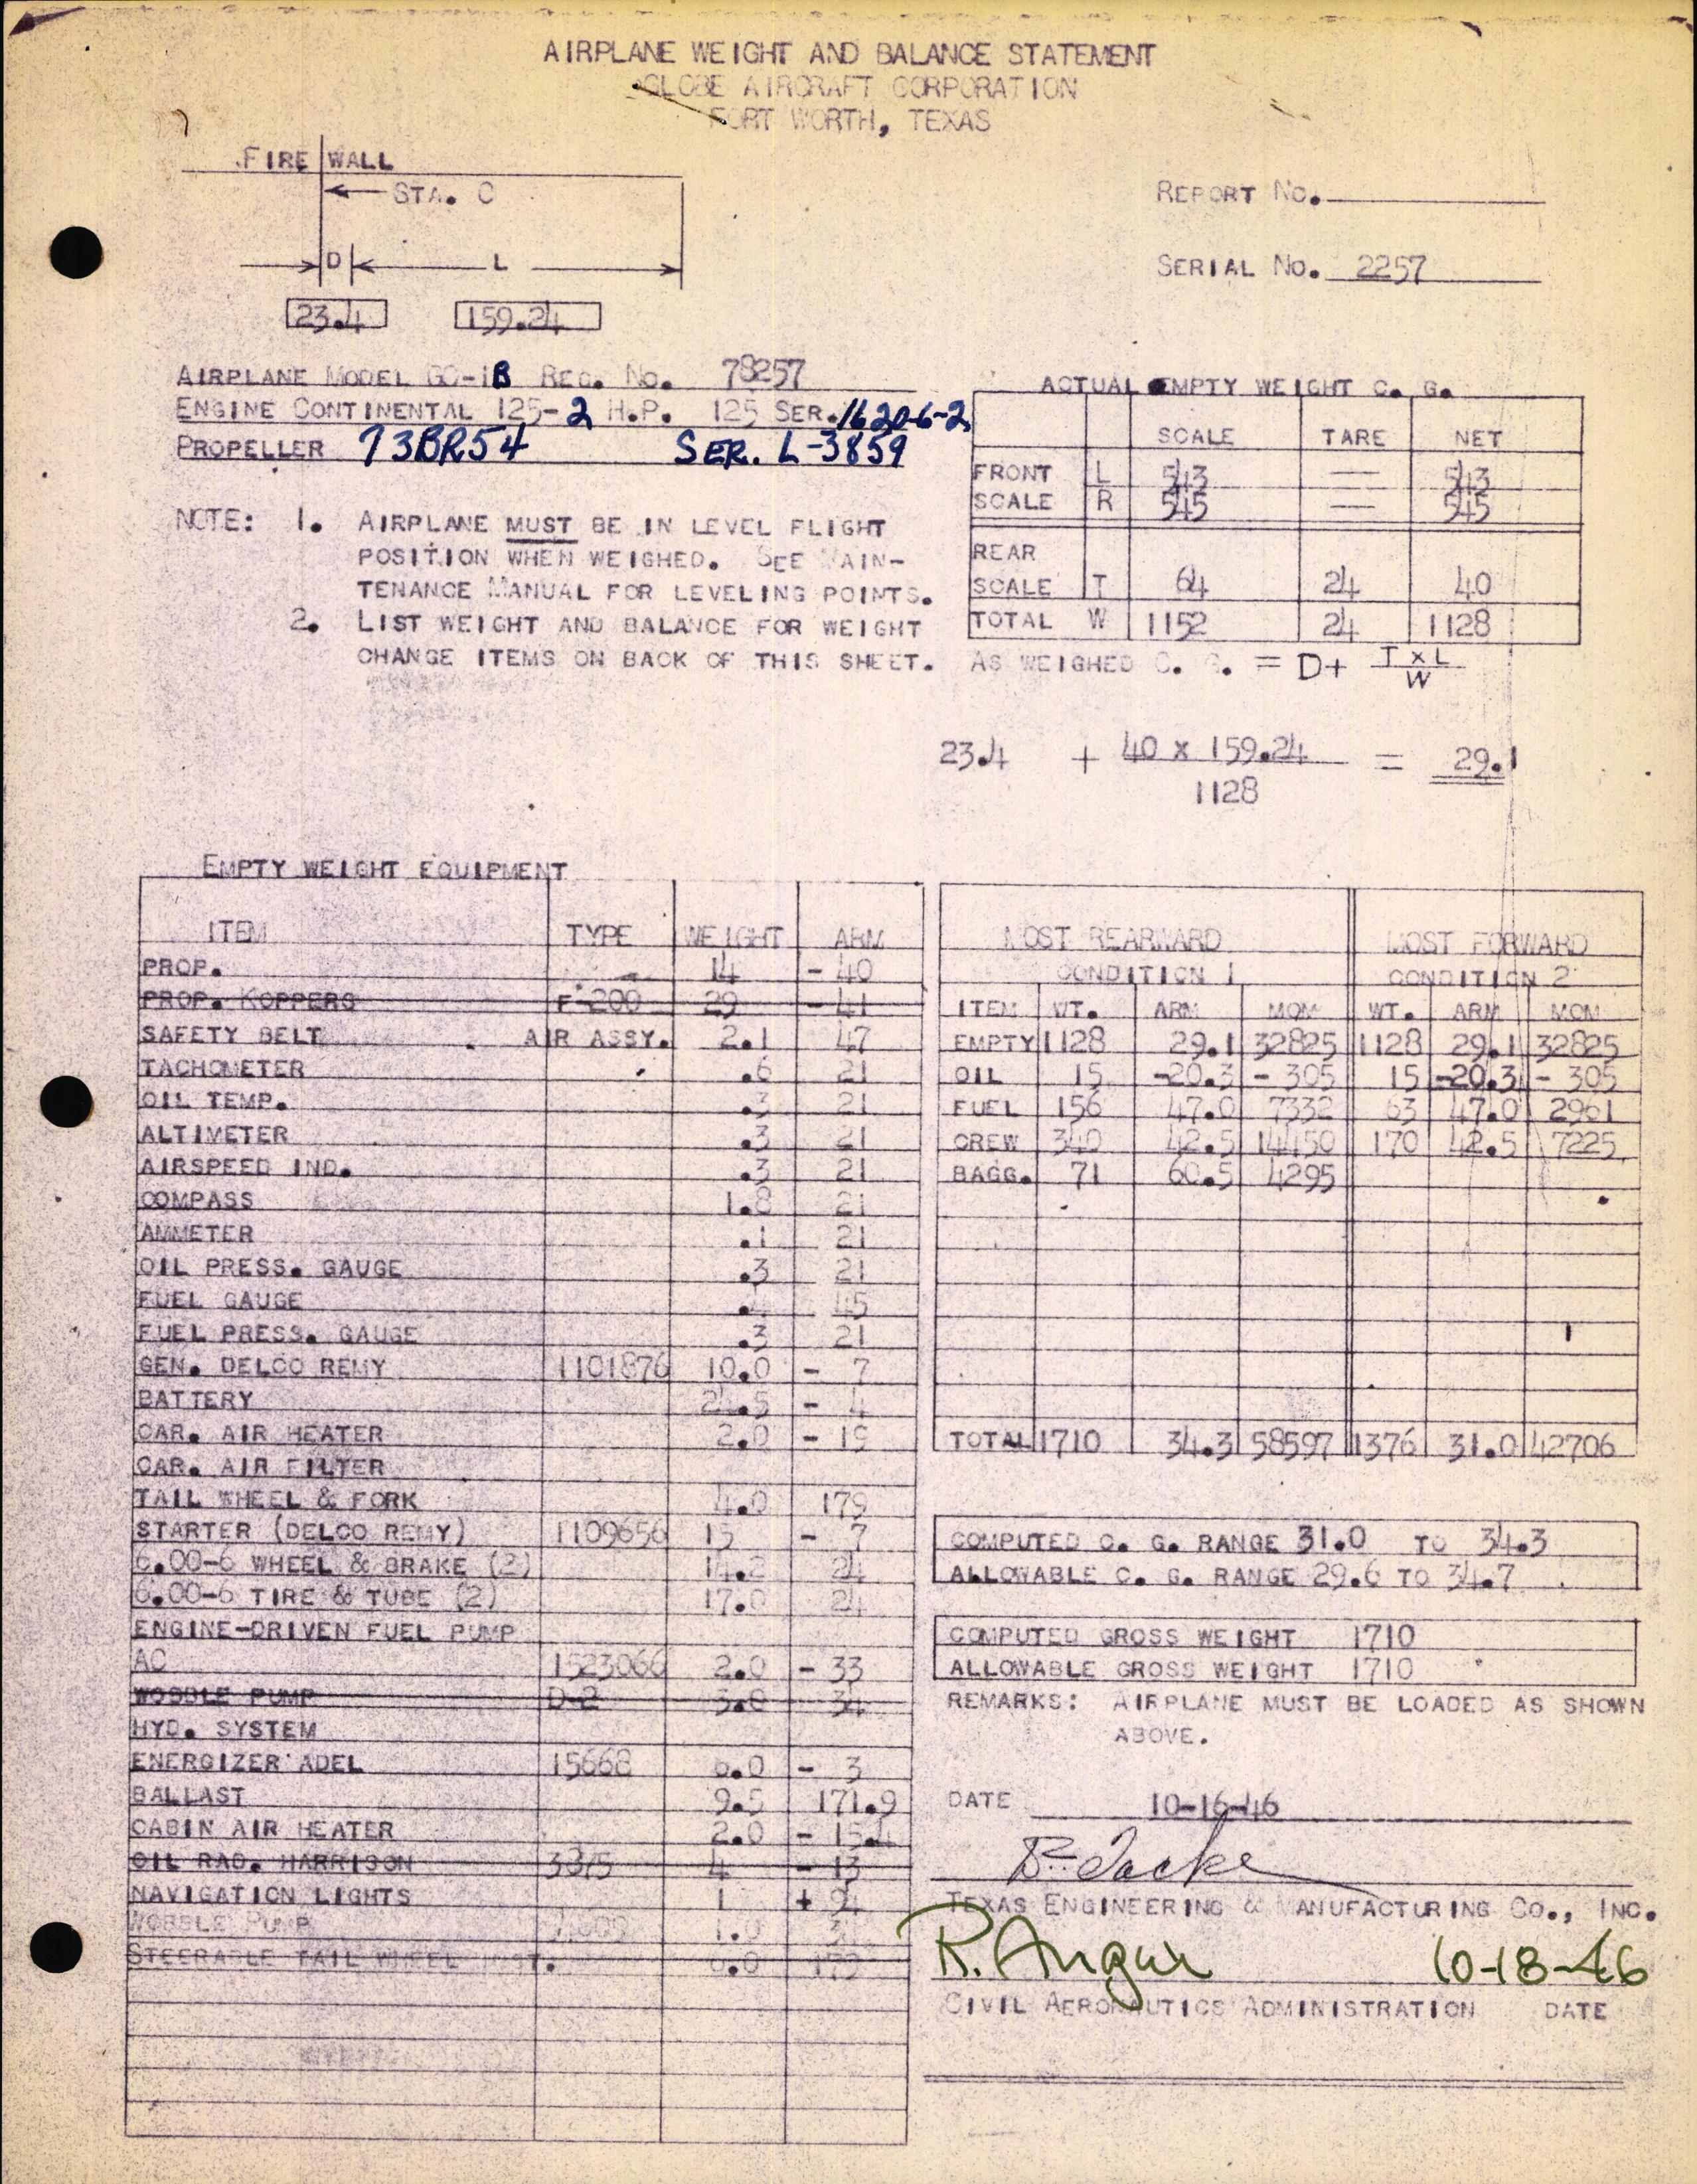 AIRPLANE WEIGHT AND BALANCE STATEMENT
GLOBE AIRCRAFT CORPORATION
FORT WORTH, TEXAS
FIRE WALL
STA. O
D L
23.4 159.24
REPORT NO.
SERIAL NO. 2257
AIRPLANE MODEL GC-1B REG. NO. 78257
ENGINE CONTINENTAL 125-2 H.P. 125 SER. 16206-2
PROPELLER 73BR54 SER. L-3859
NOTE: 1. AIRPLANE MUST BE IN LEVEL FLIGHT
POSITION WHEN WEIGHED. SEE MAIN-
TENANCE MANUAL FOR LEVELING POINTS.
2. LIST WEIGHT AND BALANCE FOR WEIGHT
CHANGE ITEMS ON BACK OF THIS SHEET.
ACTUAL EMPTY WEIGHT C. G.
SCALE TARE NET
FRONT L 543 — 543
SCALE R 545 — 545
REAR
SCALE T 64 24 40
TOTAL W 1152 24 1128
AS WEIGHED C. G. = D+ T x L
W
23.4 + 40 x 159.24 = 29.1
1128
EMPTY WEIGHT EQUIPMENT
ITEM TYPE WEIGHT ARM
PROP. 14 - 40
PROP. KOPPERS F-200 29 - 41
SAFETY BELT AIR ASSY. 2.1 47
TACHOMETER .6 21
OIL TEMP. .3 21
ALTIMETER .3 21
AIRSPEED IND. .3 21
COMPASS 1.8 21
AMMETER .1 21
OIL PRESS. GAUGE .3 21
FUEL GAUGE 45
FUEL PRESS. GAUGE .3 21
GEN. DELCO REMY 1101876 10.0 - 7
BATTERY 24.5 - 4
CAR. AIR HEATER 2.0 - 19
CAR. AIR FILTER
TAIL WHEEL & FORK 4.0 179
STARTER (DELCO REMY) 1109656 15 - 7
6.00-6 WHEEL & BRAKE (2) 14.2 24
6.00-6 TIRE & TUBE (2) 17.0 24
ENGINE-DRIVEN FUEL PUMP
AC 1523066 2.0 - 33
WOBBLE PUMP D-2 3.0 - 34
HYD. SYSTEM
ENERGIZER ADEL 15668 6.0 - 3
BALLAST 9.5 171.9
CABIN AIR HEATER 2.0 - 15.4
OIL RAD. HARRISON 3375 4 - 13
NAVIGATION LIGHTS 1 + 94
WOBBLE PUMP 1.0
STEERABLE TAIL WHEEL 6.0 179
MOST REARWARD MOST FORWARD
CONDITION 1 CONDITION 2
ITEM WT. ARM MOM WT. ARM MOM
EMPTY 1128 29.1 32825 1128 29.1 32825
OIL 15 -20.3 - 305 15 -20.3 - 305
FUEL 156 47.0 7332 63 47.0 2961
CREW 340 42.5 14450 170 42.5 7225
BAGG. 71 60.5 4295
TOTAL 1710 34.3 58597 1376 31.0 42706
COMPUTED C. G. RANGE 31.0 TO 34.3
ALLOWABLE C. G. RANGE 29.6 TO 34.7
COMPUTED GROSS WEIGHT 1710
ALLOWABLE GROSS WEIGHT 1710
REMARKS: AIRPLANE MUST BE LOADED AS SHOWN
ABOVE.
DATE 10-16-46
TEXAS ENGINEERING & MANUFACTURING CO., INC.
R. Angur 10-18-46
CIVIL AERONAUTICS ADMINISTRATION DATE